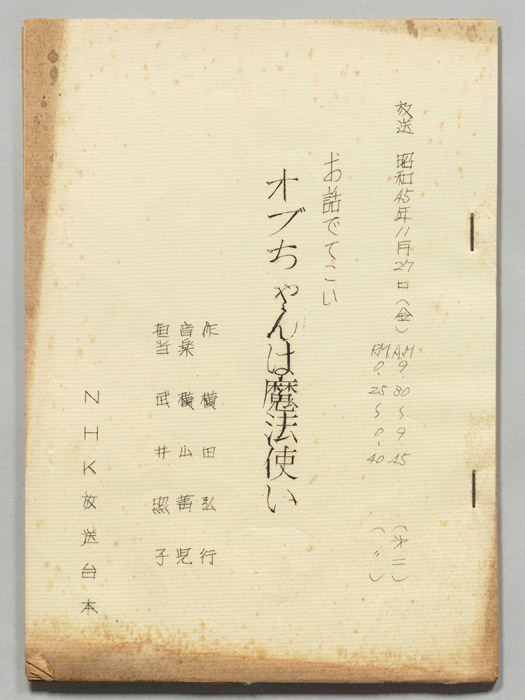 放送 昭和45年11月27日(金) AM 9.30〜9.45 (オ二)
PM 0.25〜0.40 (〃)
お話でてこい
オブちゃんは魔法使い
作 横田弘行
音楽 横山菁児
担当 武井照子
NHK放送台本